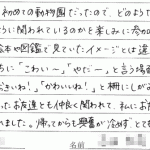 初めての動物園だったので、どのよう
うに関われているのかを楽しみに参加
絵本や図鑑で見ていたイメージとは違
ちに「こわいー」「やだー」と言う場面
だきいね!」「かわいいね!」と柵にしがみ
ったお友達とも仲良く関われて、私にお
れました。帰ってからも興奮が冷めず
名前